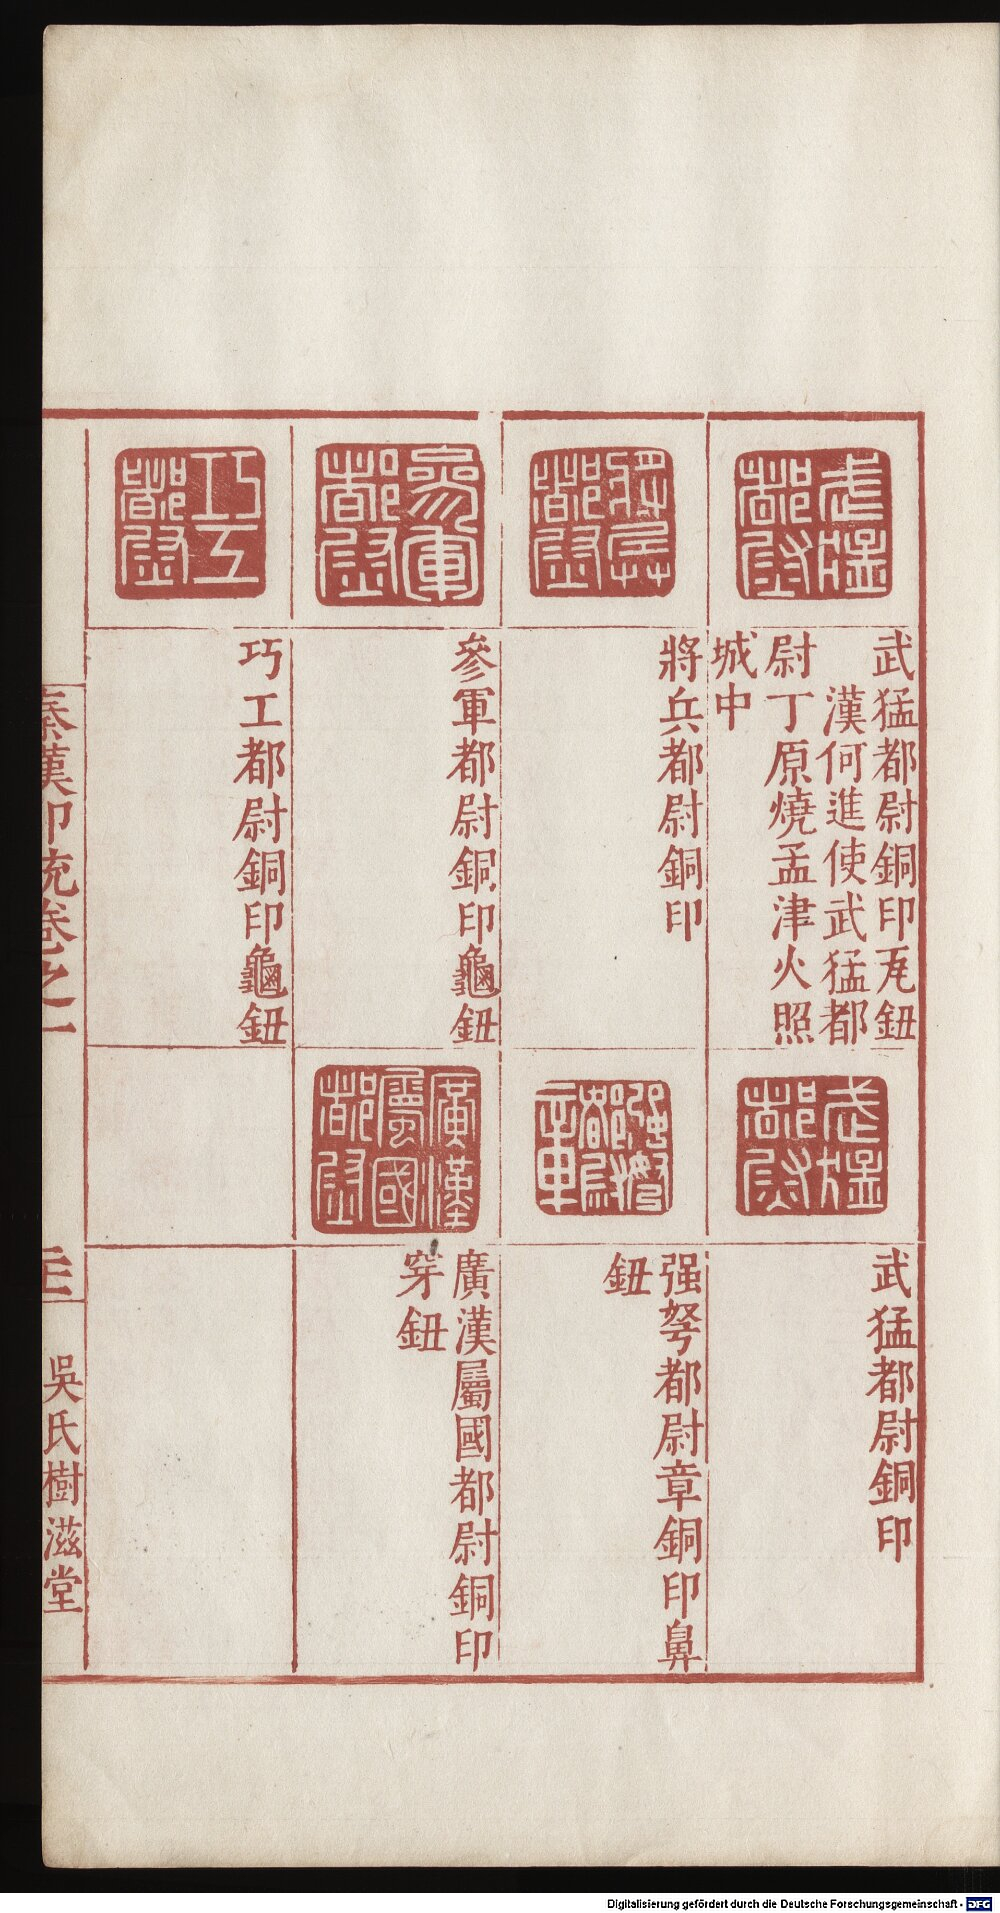 武猛都尉
武猛都尉銅印瓦鈕
漢何進使武猛都
尉丁原燒孟津火照
城中
將兵都尉
將兵都尉銅印
參軍都尉
參軍都尉銅印龜鈕
巧工都尉
巧工都尉銅印龜鈕
武猛都尉
武猛都尉銅印
强弩都尉章
强弩都尉章銅印鼻
鈕
廣漢屬國都尉
廣漢屬國都尉銅印
穿鈕
秦漢印統卷之一
吳氏樹滋堂
Digitalisierung gefördert durch die Deutsche Forschungsgemeinschaft - DFG